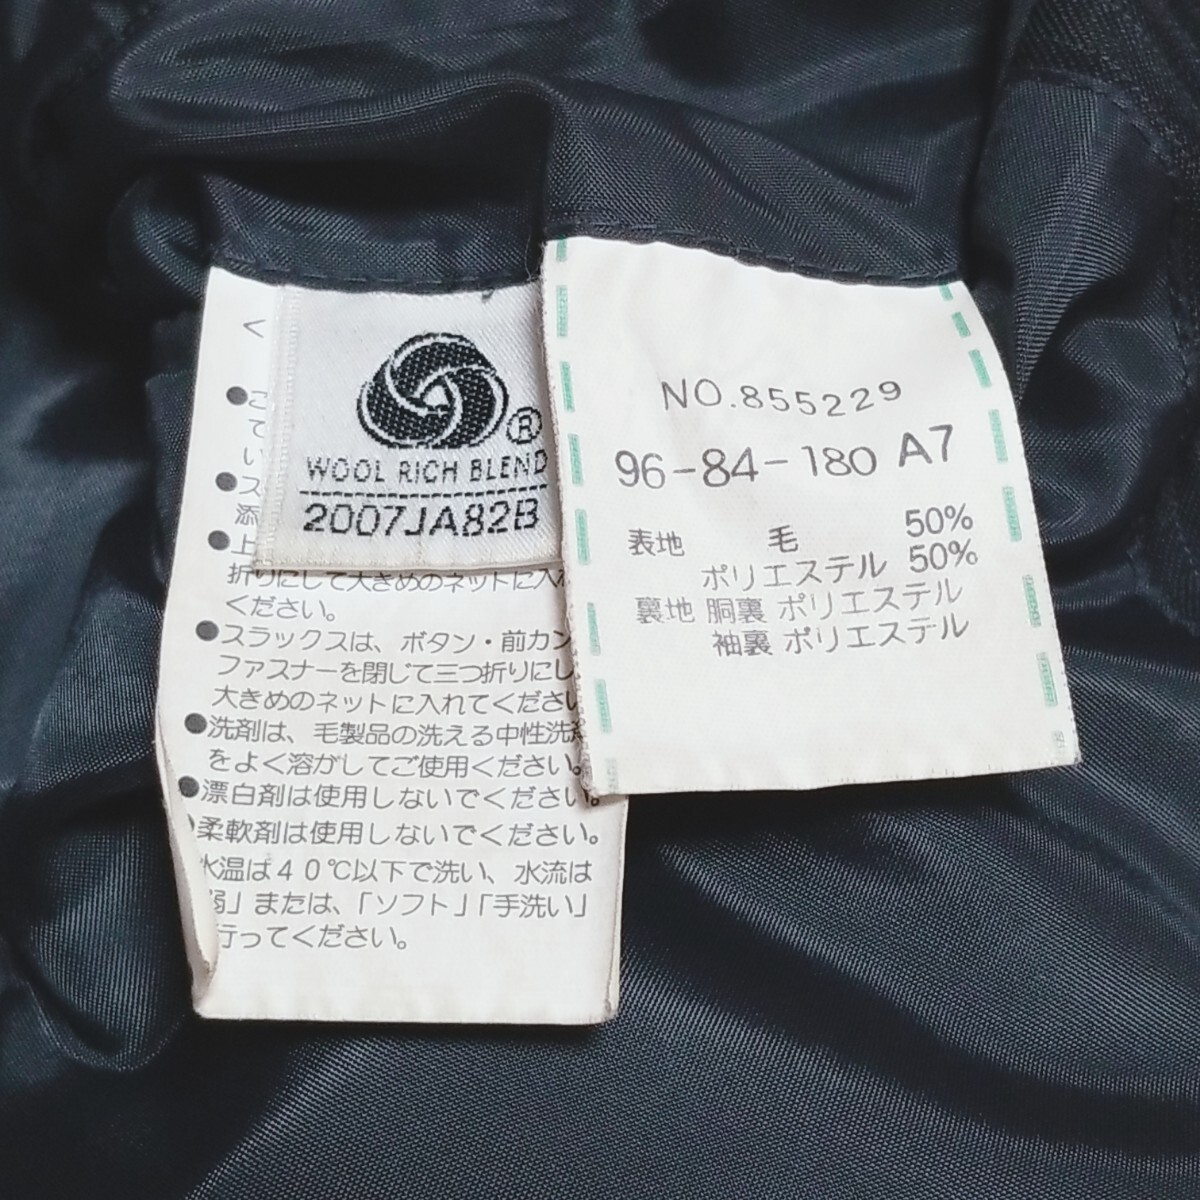 WOOL RICH BLEND
2007JA82B
NO.855229
96-84-180 A7
表地 毛 50%
ポリエステル 50%
裏地 胴裏 ポリエステル
袖裏 ポリエステル
<
●こ
て
い
●ス
添
●上
折りにして大きめのネットに入れ
ください。
●スラックスは、ボタン・前カン
ファスナーを閉じて三つ折りにし
大きめのネットに入れてください
●洗剤は、毛製品の洗える中性洗剤
をよく溶かしてご使用ください。
●漂白剤は使用しないでください。
柔軟剤は使用しないでください。
水温は40℃以下で洗い、水流は
弱」または、「ソフト」「手洗い」
行ってください。